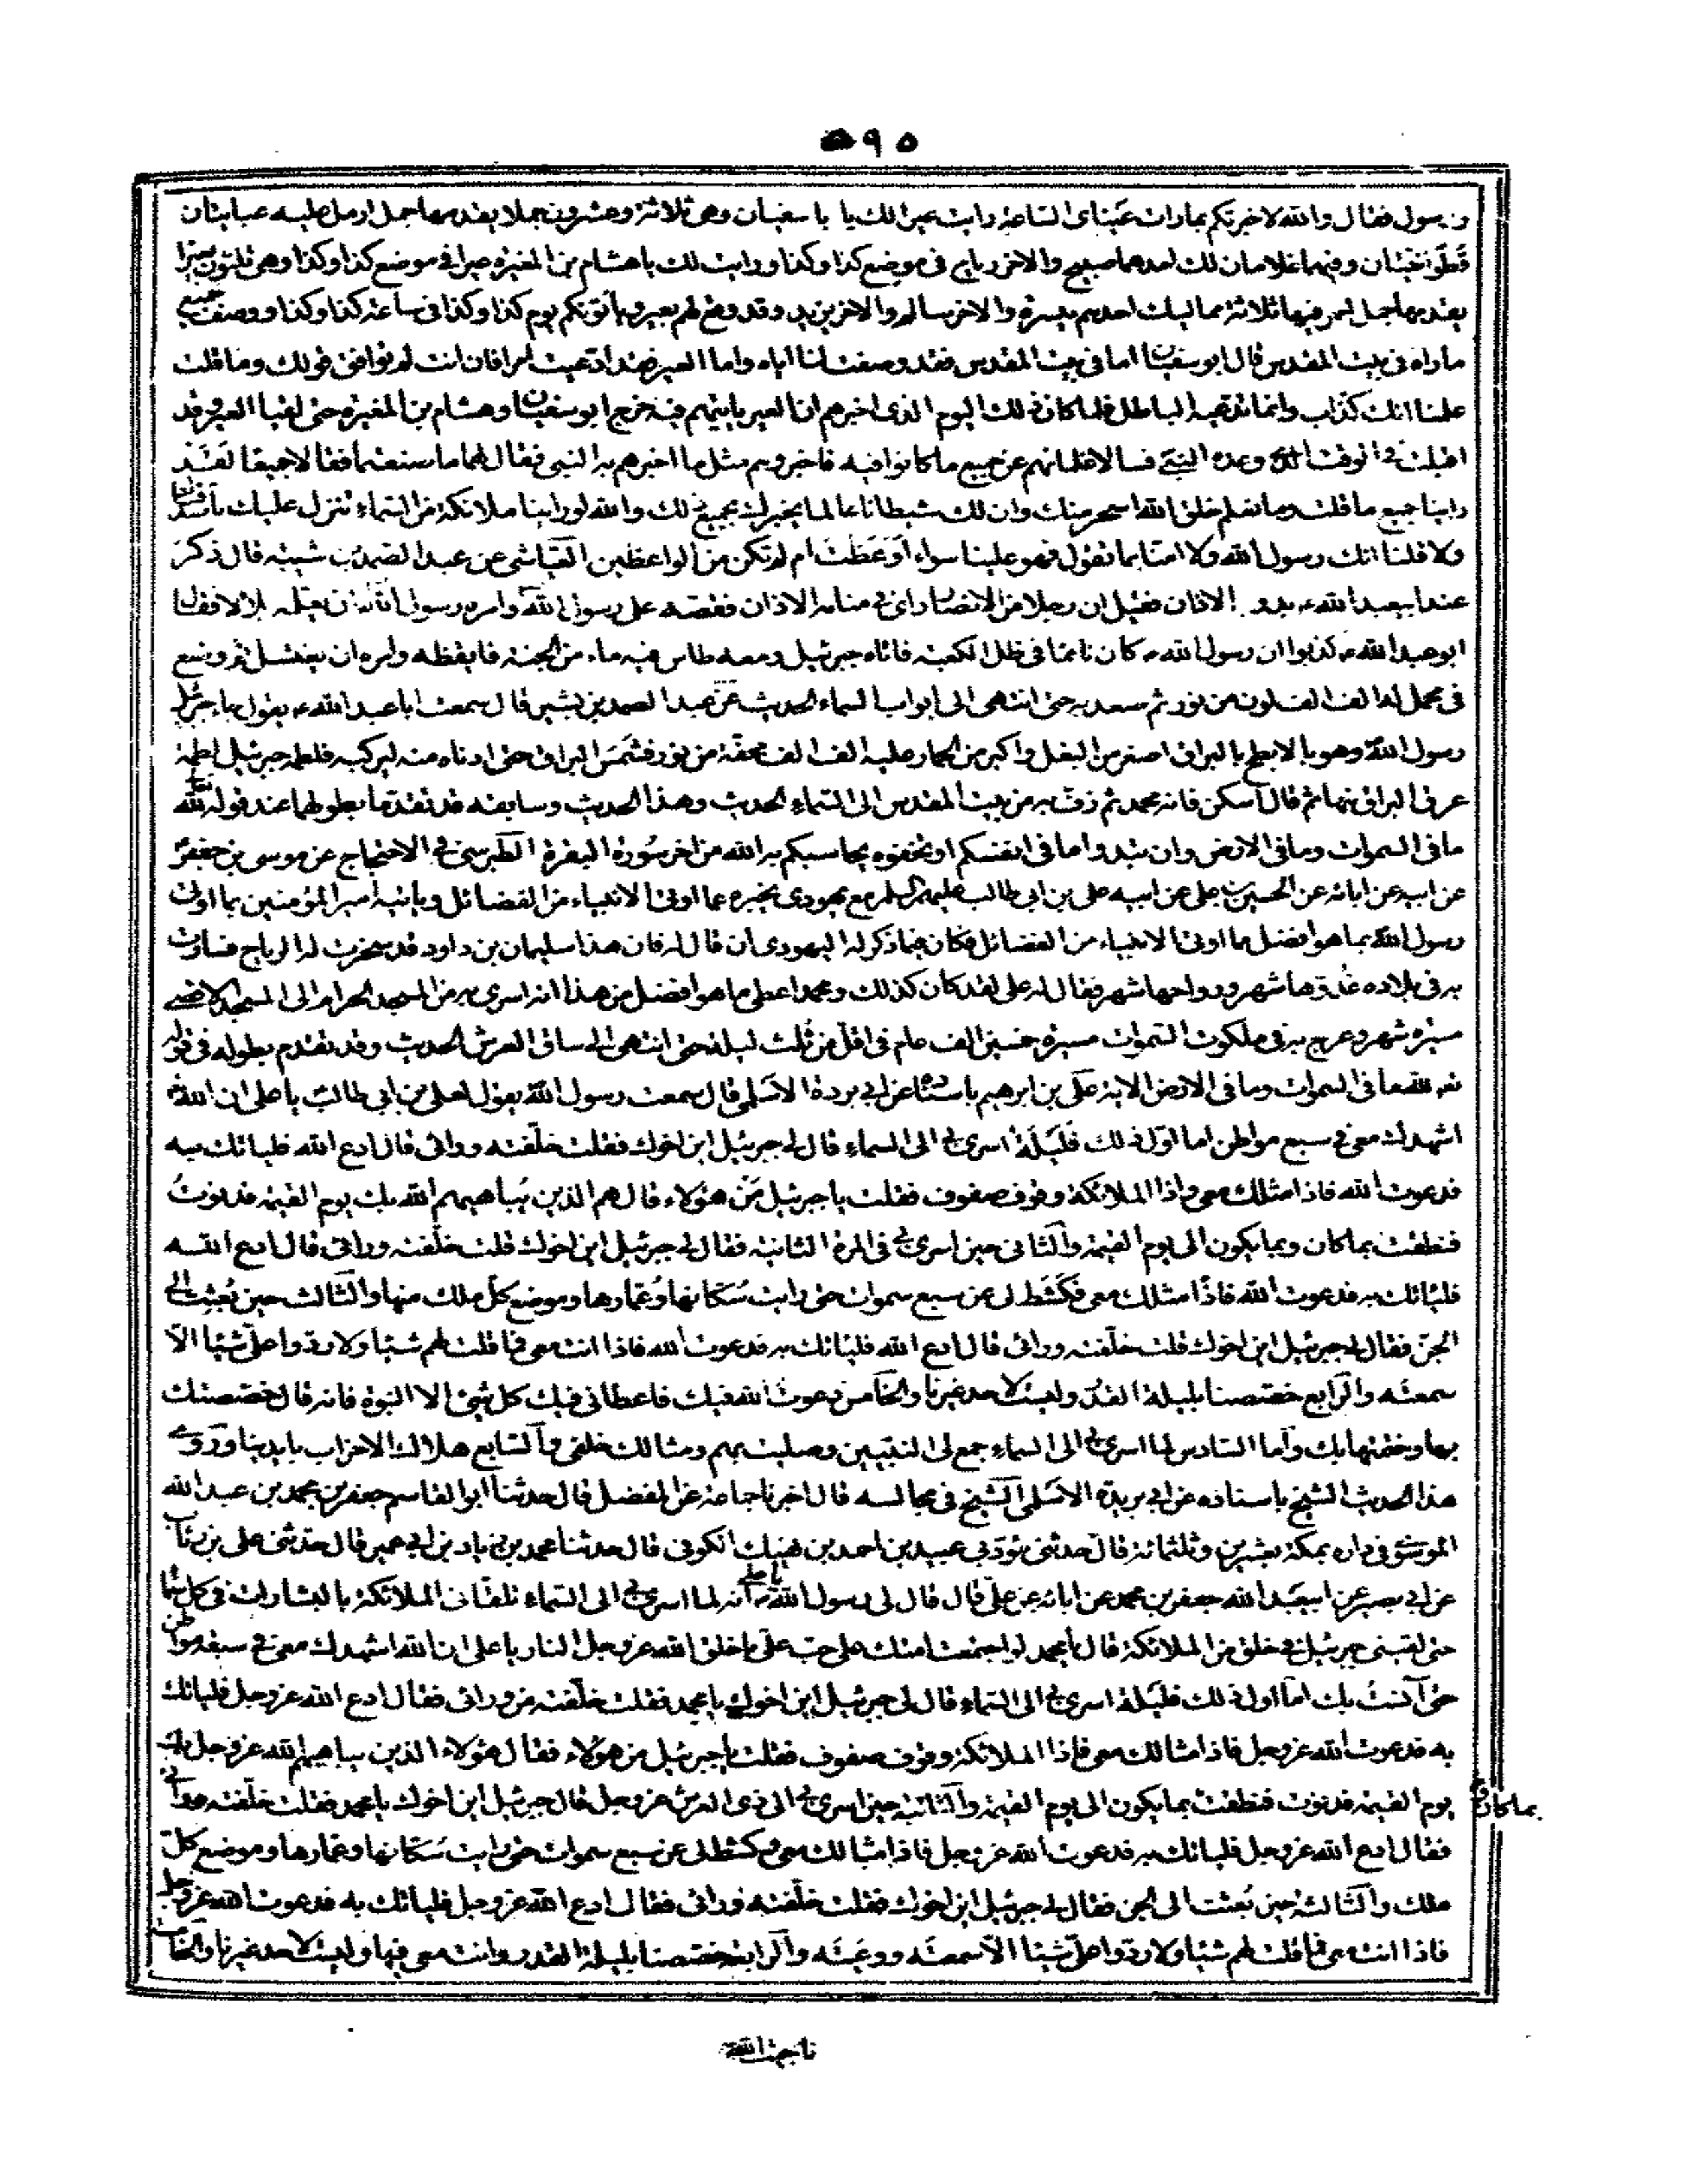 ٥٩٥
رسول فقال والله لاخبرنكم بمارات عيناى الساعة رايت عيرا لك يا با سفيان وهى ثلاثة وعشرون جملا يقدمها جمل ارمك عليه عبايتان
قطوانيتان وفيهما غلامان لك احدهما صبيح والاخر رياح فى موضع كذا وكذا ورايت لك ياهشام بن المغيرة عيرا فى موضع كذا وكذا وهى ثلثون بعيرا
يقدمها جمل احمر فيها ثلاثة مماليك احدهم ميسرة والاخر سالم والاخر يزيد وقد وقع لهم بعير وياتونكم يوم كذا وكذا فى ساعة كذا وكذا ووصف جميع
ماراه فى بيت المقدس قال ابوسفيان اما فى بيت المقدس فقد وصفت لنا اياه واما العير فقد ادعيت امرا فان انت لم توافق قولك وما قلت
علمنا انك كذاب وانما تدعيه الباطل فلما كان ذلك اليوم الذى اخبرهم ان العير ياتيهم فيه خرج ابوسفيان وهشام بن المغيرة حتى لقيا العير وقد
اقبلت فى الوقت الذى وعده النبى فسالا غلمانهم عن جميع ما كانوا فيه فاخبروهم مثل ما اخبرهم به النبى فقال لهما ما صنعتما فقالا جميعا لقد
راينا جميع ما قلت وما تعلم خلق الله اسحر منك وان لك شيطانا عالما يخبرك بجميع ذلك والله لو راينا ملائكة من السماء تنزل عليك ما صدقناك
ولا قلنا انك رسول الله ولا امنا بما تقول فهو علينا سواء اوعظت ام لم تكن من الواعظين العياشى عن عبد الصمد بن شيبة قال ذكر
عند ابيعبد الله ء بدو الاذان فقيل ان رجلا من الانصار راى فى منامه الاذان فقصه على رسول الله وامره رسول الله ان يعلمه بلالا فقال
ابوعبد الله ء كذبوا ان رسول الله ء كان نائما فى ظل الكعبة فاتاه جبرئيل ومعه طاس فيه ماء من الجنة فايقظه وامره ان يغتسل ثم وضع
فى محمل له الف الف لون من نور ثم صعد به حتى انتهى الى ابواب السماء الحديث عن عبد الصمد بن بشير قال سمعت ابا عبد الله ء يقول جاء جبرئيل
رسول الله وهو بالابطح بالبراق اصغر من البغل واكبر من الحمار عليه الف الف محفة من نور فشمس البراق حتى ادناه منه ليركبه فلطمه جبرئيل لطمة
عرق البراق منها ثم قال اسكن فانه محمد ثم زف به من بيت المقدس الى السماء الحديث وهذا الحديث وسابقه قد تقدما بطولهما عند قوله لله
مافى السموات ومافى الارض وان تبدوا ما فى انفسكم او تخفوه يحاسبكم به الله من اخر سورة البقرة الطبرسى فى الاحتجاج عن موسى بن جعفر
عن ابيه عن ابائه عن الحسين بن على عن ابيه على بن ابى طالب عليهم السلم مع يهودى يخبره عما اوتى الانبياء من الفضائل وياتيه امير المؤمنين بما اوتى
رسول الله بما هو افضل مما اوتى الانبياء من الفضائل فكان فيما ذكر له اليهودى ان قال له فان هذا سليمان بن داود قد سخرت له الرياح فسارت
به فى بلاده غدوها شهر ورواحها شهر فقال له على لقد كان كذلك ومحمد اعطى ما هو افضل من هذا انه اسرى به من المسجد الحرام الى المسجد الاقصى
مسيرة شهر وعرج به فى ملكوت السموات مسيرة خمسين الف عام فى اقل من ثلث ليلة حتى انتهى الى ساق العرش الحديث وقد تقدم بطوله فى قوله
لله مافى السموات ومافى الارض الاية على بن ابرهيم باسناده عن ابى بردة الاسلمى قال سمعت رسول الله يقول لعلى بن ابى طالب يا على ان الله
اشهدك معى فى سبع مواطن اما اول ذلك فليلة اسرى بى الى السماء قال لى جبرئيل اين اخوك فقلت خلفته ورائى قال ادع الله فلياتك به
فدعوت الله فاذا مثلك معى واذا الملائكة وقوف صفوف فقلت يا جبرئيل من هؤلاء قال هم الذين يباهيهم الله بك يوم القيمة فدنوت
فنطقت بما كان وبما يكون الى يوم القيمة والثانى حين اسرى بى فى المرة الثانية فقال لى جبرئيل اين اخوك قلت خلفته ورائى قال ادع الله
فلياتك به فدعوت الله فاذا مثلك معى فكشط لى عن سبع سموات حتى رايت سكانها وعمارها وموضع كل ملك منها والثالث حين بعثت الى
الجن فقال لى جبرئيل اين اخوك قلت خلفته ورائى قال ادع الله فلياتك به فدعوت الله فاذا انت معى فما قلت لهم شيئا ولا ردوا على شيئا الا
سمعته والرابع خصصنا بليلة القدر وليست لاحد غيرنا والخامس دعوت الله فيك فاعطانى فيك كل شىء الا النبوة فانه قال خصصتك
بها وختمتها بك واما السادس لما اسرى بى الى السماء جمع لى النبيين وصليت بهم ومثالك خلفى والسابع هلاك الاحزاب بايدينا وروى
هذا الحديث الشيخ باسناده عن ابى بريدة الاسلمى الشيخ فى مجالسه قال اخبرنا جماعة عن المفضل قال حدثنا ابو القاسم جعفر بن محمد بن عبد الله
الموسوى فى داره بمكة بعشرين وثلثمائة قال حدثنى مؤدبى عبيد بن احمد بن نهيك الكوفى قال حدثنا محمد بن زياد بن ابى عمير قال حدثنى على بن رئاب
عن ابى بصير عن ابيعبد الله جعفر بن محمد عن ابائه عن على قال قال لى رسول الله ياعلى انه لما اسرى بى الى السماء تلقانى الملائكة بالبشارات فى كل سماء
حتى لقينى جبرئيل فى خلق من الملائكة قال يامحمد لو اجتمعت امتك على حب على ما خلق الله عز وجل النار يا على ان الله اشهدك معى فى سبعة مواطن
حتى آنست بك اما اول ذلك فليلة اسرى بى الى السماء قال لى جبرئيل اين اخوك يا محمد فقلت خلفته من ورائى فقال ادع الله عز وجل فلياتك
به فدعوت الله عز وجل فاذا مثالك معى فاذا الملائكة وقوف صفوف فقلت يا جبرئيل من هؤلاء فقال هؤلاء الذين يباهيهم الله عز وجل بك
يوم القيمة فدنوت فنطقت بما يكون الى يوم القيمة والثانية حين اسرى بى الى ذى العرش عز وجل قال جبرئيل اين اخوك يا محمد فقلت خلفته ورائى
بما كان و
فقال ادع الله عز وجل فلياتك به فدعوت الله عز وجل فاذا مثالك معى وكشط لى عن سبع سموات حتى رايت سكانها وعمارها وموضع كل
ملك والثالثة حين بعثت الى الجن فقال لى جبرئيل اين اخوك فقلت خلفته ورائى فقال ادع الله عز وجل فلياتك به فدعوت الله عز وجل
فاذا انت معى فما قلت لهم شيئا ولا ردوا على شيئا الا سمعته ووعيته والرابعة خصصنا بليلة القدر وانت معى فيها وليست لاحد غيرنا والخامسة
ناجيت الله